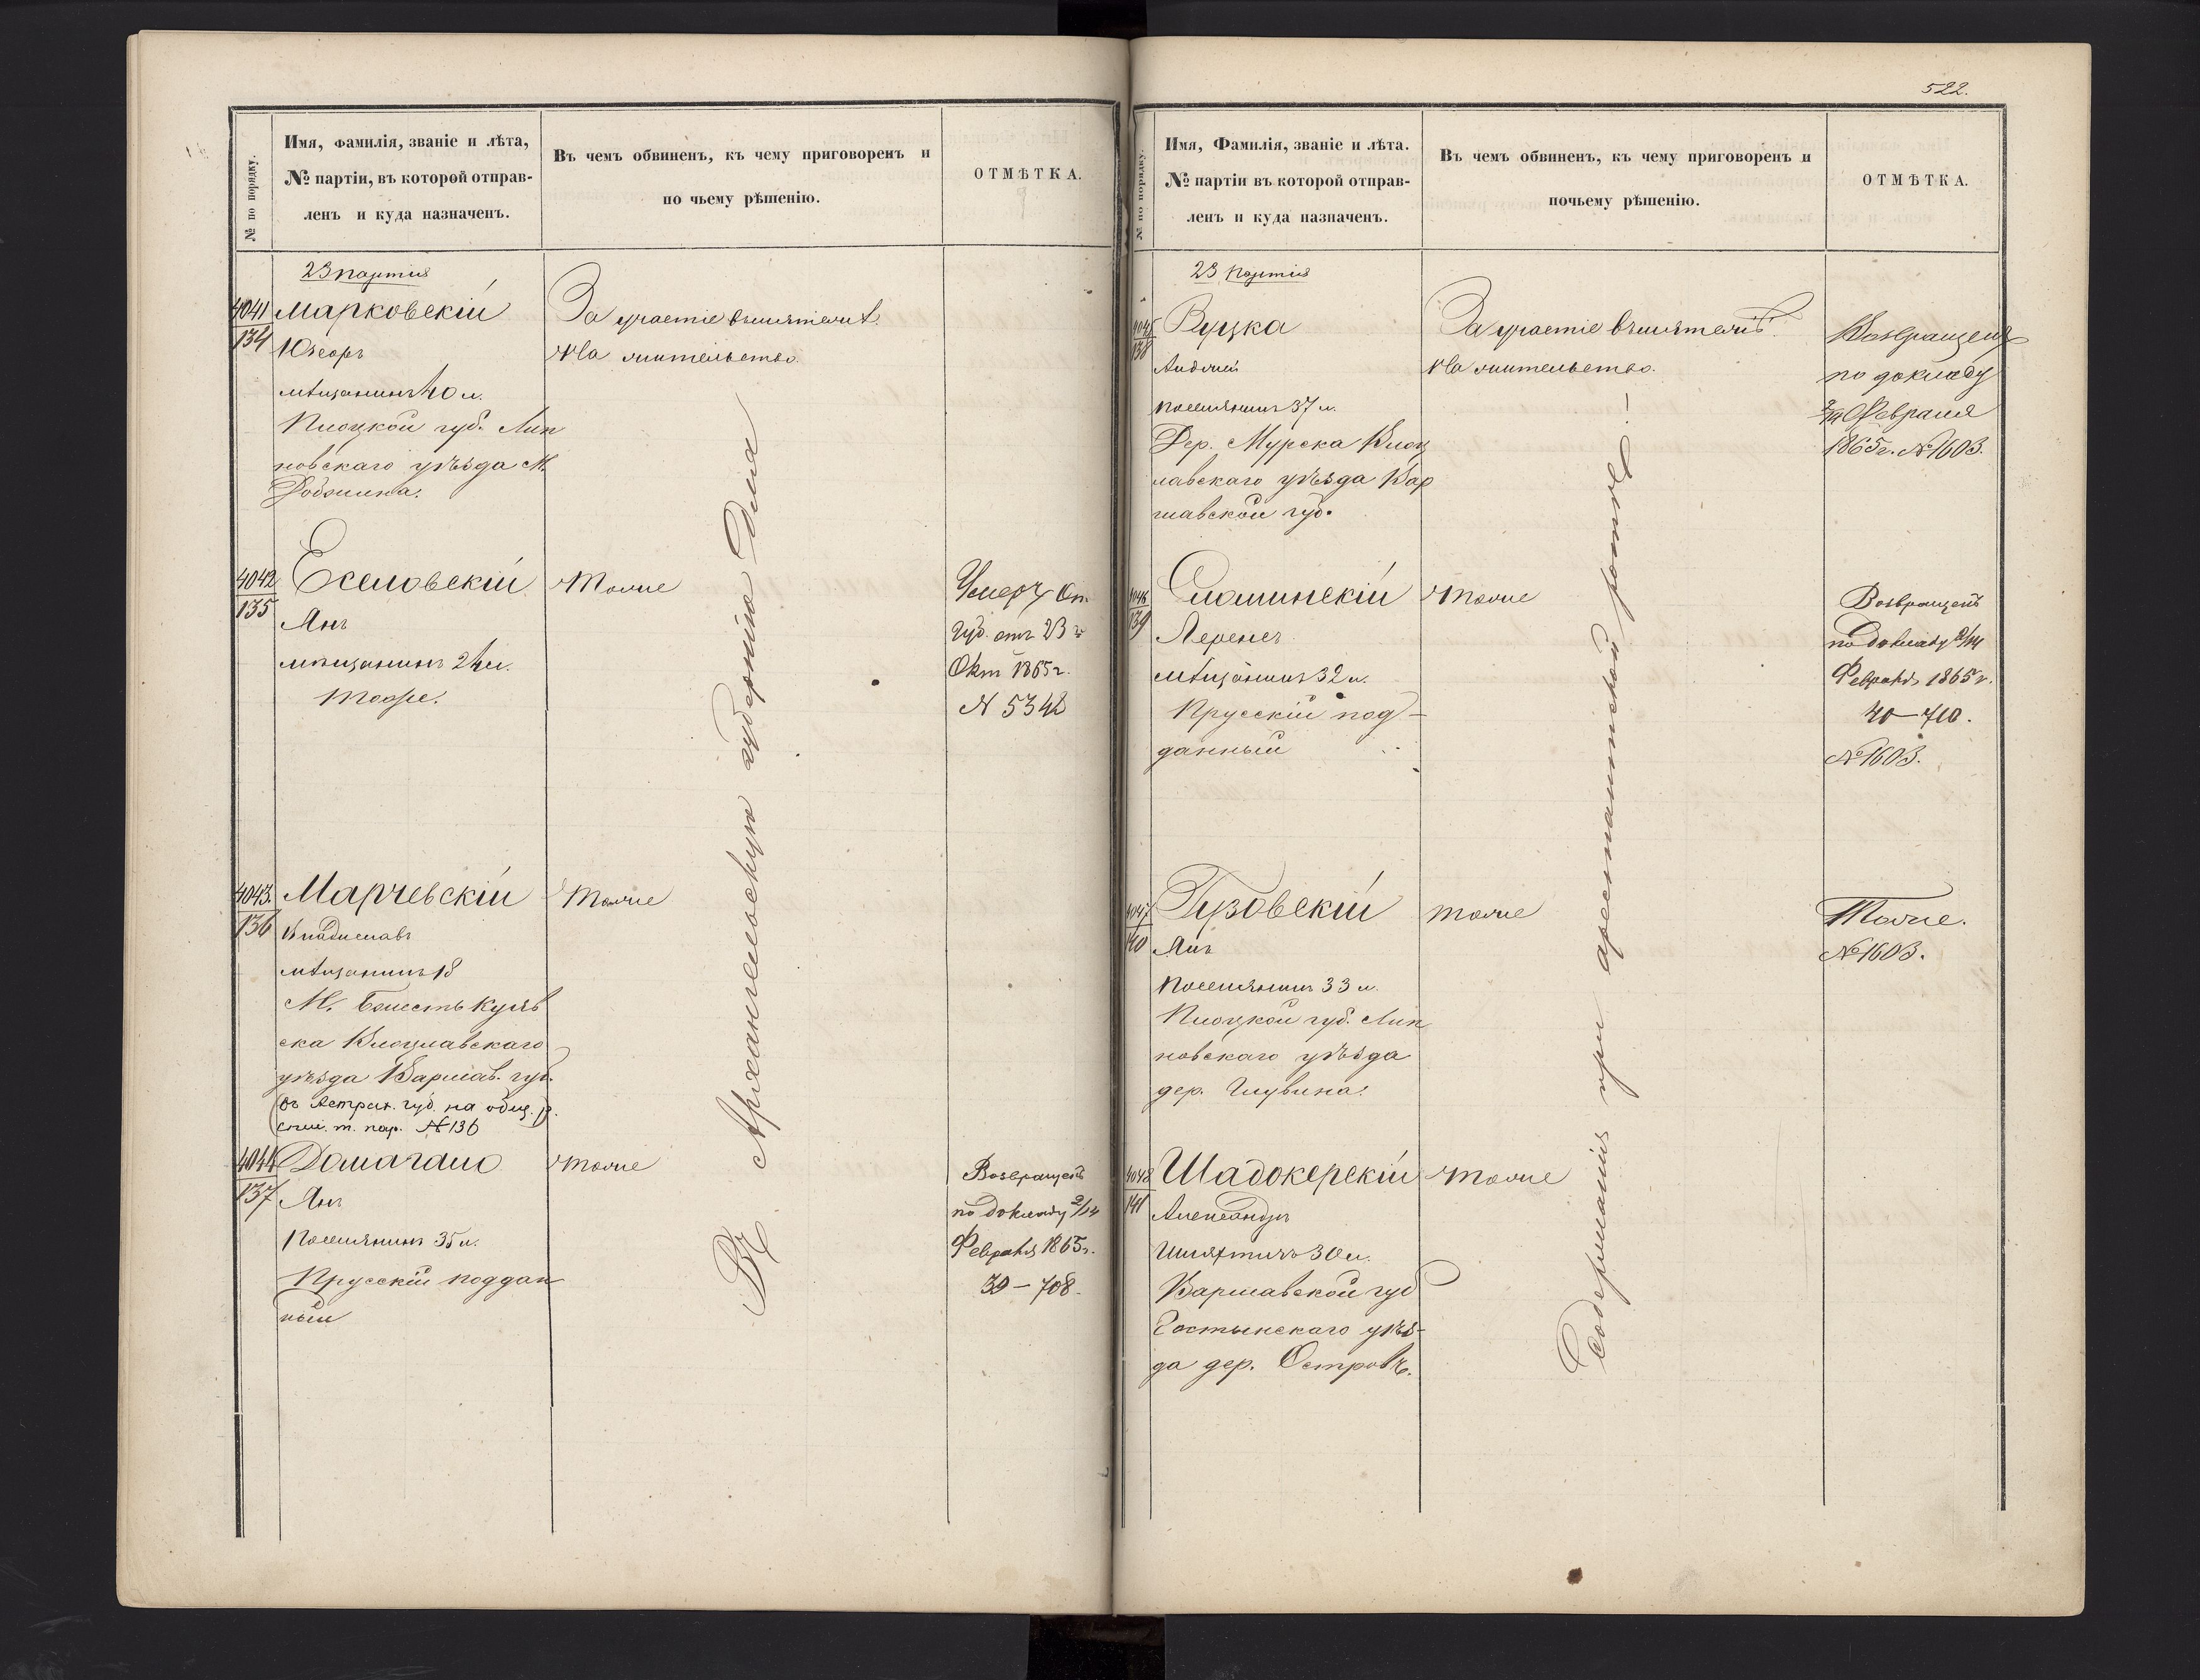 522.
№ по порядку.
Имя, фамилія, званіе и лѣта,
№ партіи, въ которой отправ-
ленъ и куда назначенъ.
Въ чемъ обвиненъ, къ чему приговоренъ и
по чьему рѣшенію.
ОТМѢТКА.
23 партія
4041
134
Марковскій
Юзефъ
мѣщанинъ 40 л.
Плоцкой губ. Лип
новскаго уѣзда М.
Добжина.
За участіе въ мятежѣ
На жительство
4042
135
Янъ
мѣщанинъ 24 л.
Тоже.
Тоже
Умеръ От.
Губ. отъ 23 го
Окт 1865 г.
N 5342
4043.
136
Марчевскій
Владиславъ
мѣщанинъ 18
М.
ска Влоцлавскаго
уѣзда Варшав. губ.
(въ Астрах. губ. на общ.
спис. т. пар. № 136
Тоже
4044
137
Янъ
Поселянинъ 35 л.
Прусскій поддан
ный
Тоже
Возвращенъ
по докладу 2/14
Февраля 1865 г.
39 – 708.
Въ Архангельскую губернію Дѣла
№ по порядку.
Имя, Фамилія, званіе и лѣта.
№ партіи въ которой отправ-
ленъ и куда назначенъ.
Въ чемъ обвиненъ, къ чему приговоренъ и
почьему рѣшенію.
ОТМѢТКА.
23 партія
4045
138
Руцка
Андрей
поселянинъ 37 л.
Дер. Мурска Влоц
лавскаго уѣзда Вар
шавской губ.
За участіе въ мятежѣ
На жительство.
Возвращенъ
по докладу
2/14 Февраля
1865 г. № 1603.
4046
139
мѣщанинъ 32 л.
Прусскій под-
данный
Тоже
Возвращенъ
по докладу 2/14
Февраля 1865 г.
40 – 710.
№ 1603.
4047
140
Гузовскій
Янъ
Поселянинъ 33 л.
Плоцкой губ. Лип
новскаго уѣзда
дер. Глувина.
тоже
Тоже.
№ 1603.
4048
141
Шадокерскій
Александръ
Шляхтичъ 30 л.
Варшавской губ
Гостынскаго уѣз-
да дер. Островъ.
Тоже
Содержанія при арестантской ротѣ!